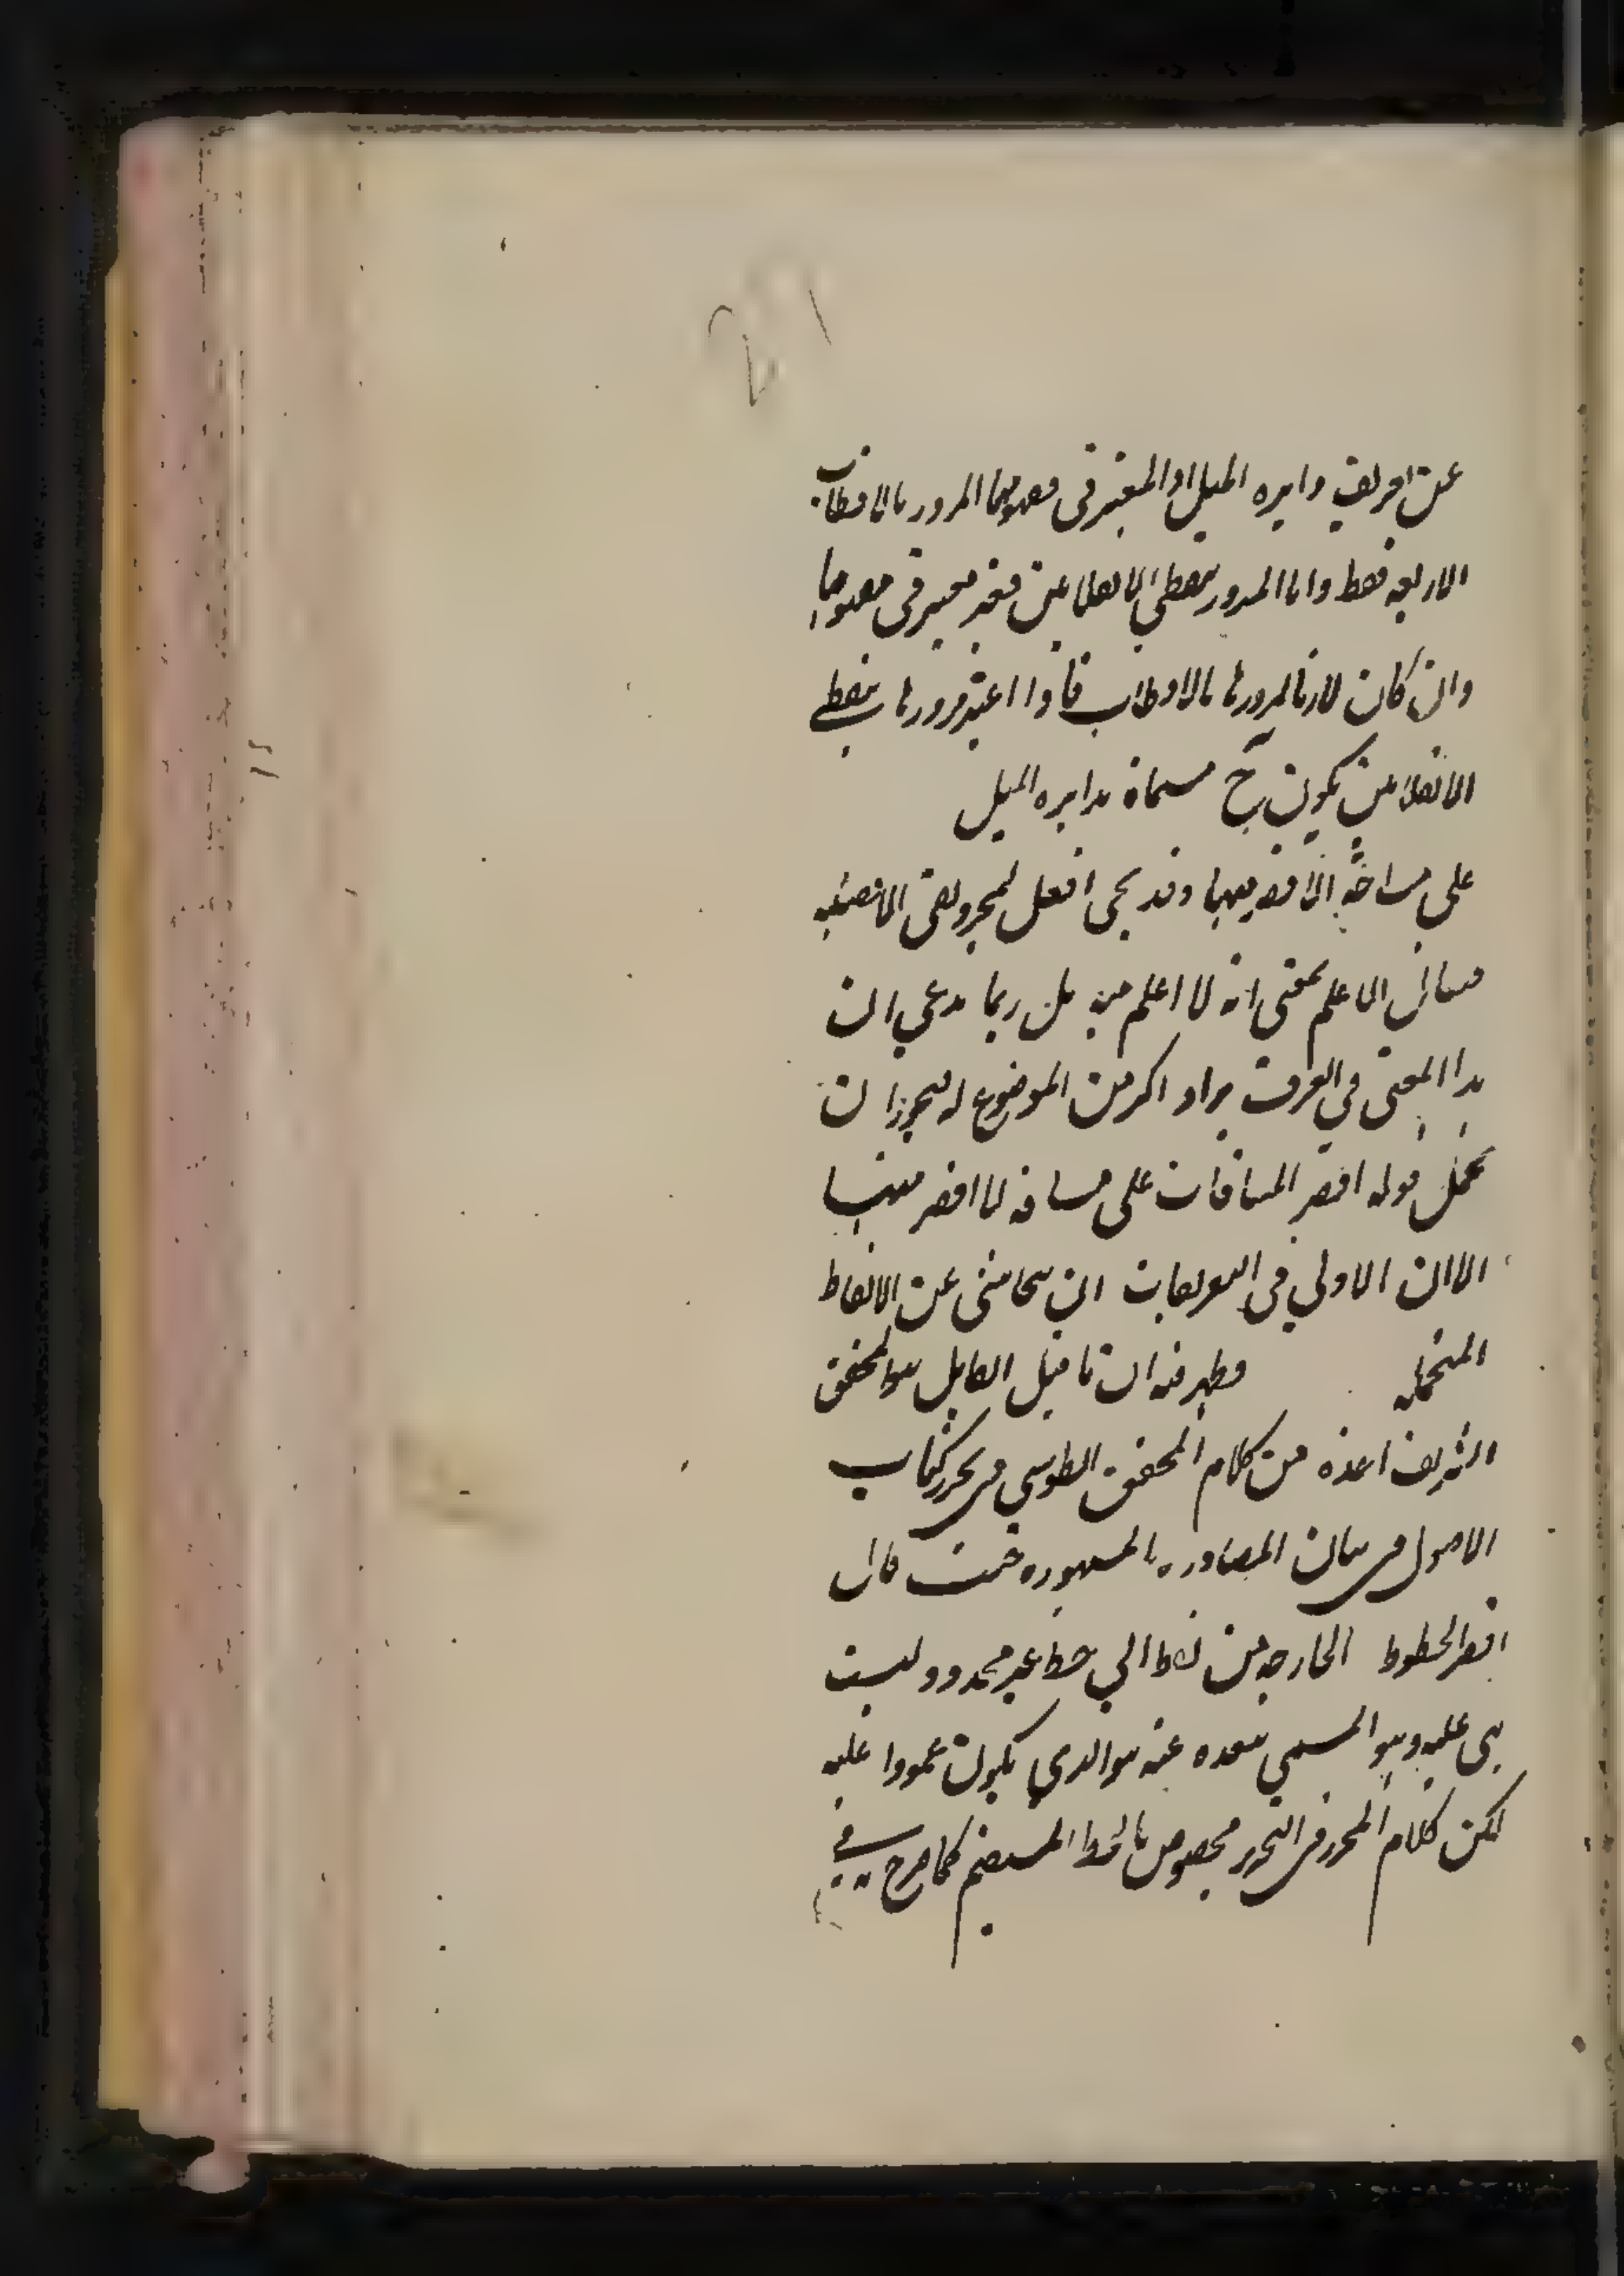 عن افريق دايره الميل اذ المعتبر فى مفهومها المرور بالاقطاب
الاربعه فقط واما المرور بنقطتى الانقلابين فغير معتبر فى مفهومها
وان كان لازما لمرورها بالاقطاب فاذا اعتبر مرورها بنقطتى
الانقلابين يكون ح مسماة بدايره الميل
على مساحة الاقصر منها وقد يجى افعل لمجرد نفى الانصيفيه
فيقال الاعلم بمعنى انه لا اعلم منه بل ربما يدعى ان
هذا المعنى فى العرف يراد اكثر من الموضوع له فيجوز ان
يحمل قوله اقصر المسافات على مسافه لا اقصر منها
الا ان الاولى فى التعريفات ان يتحاشى عن الالفاظ
المتحمله فظهر منه ان ما قيل القايل هو المحقق
الشريف اخذه من كلام المحقق الطوسى فى تحرير كتاب
الاصول فى بيان المصادره المشهوره حيث قال
اقصر الخطوط الخارجه من نقطه الى خط غير محدود ليست
هى عليه وهو المسمى ببعده عنه هو الذى يكون عمودا عليه
لكن كلام المحرر فى التحرير مخصوص بالخط المستقيم كما صرح به فى